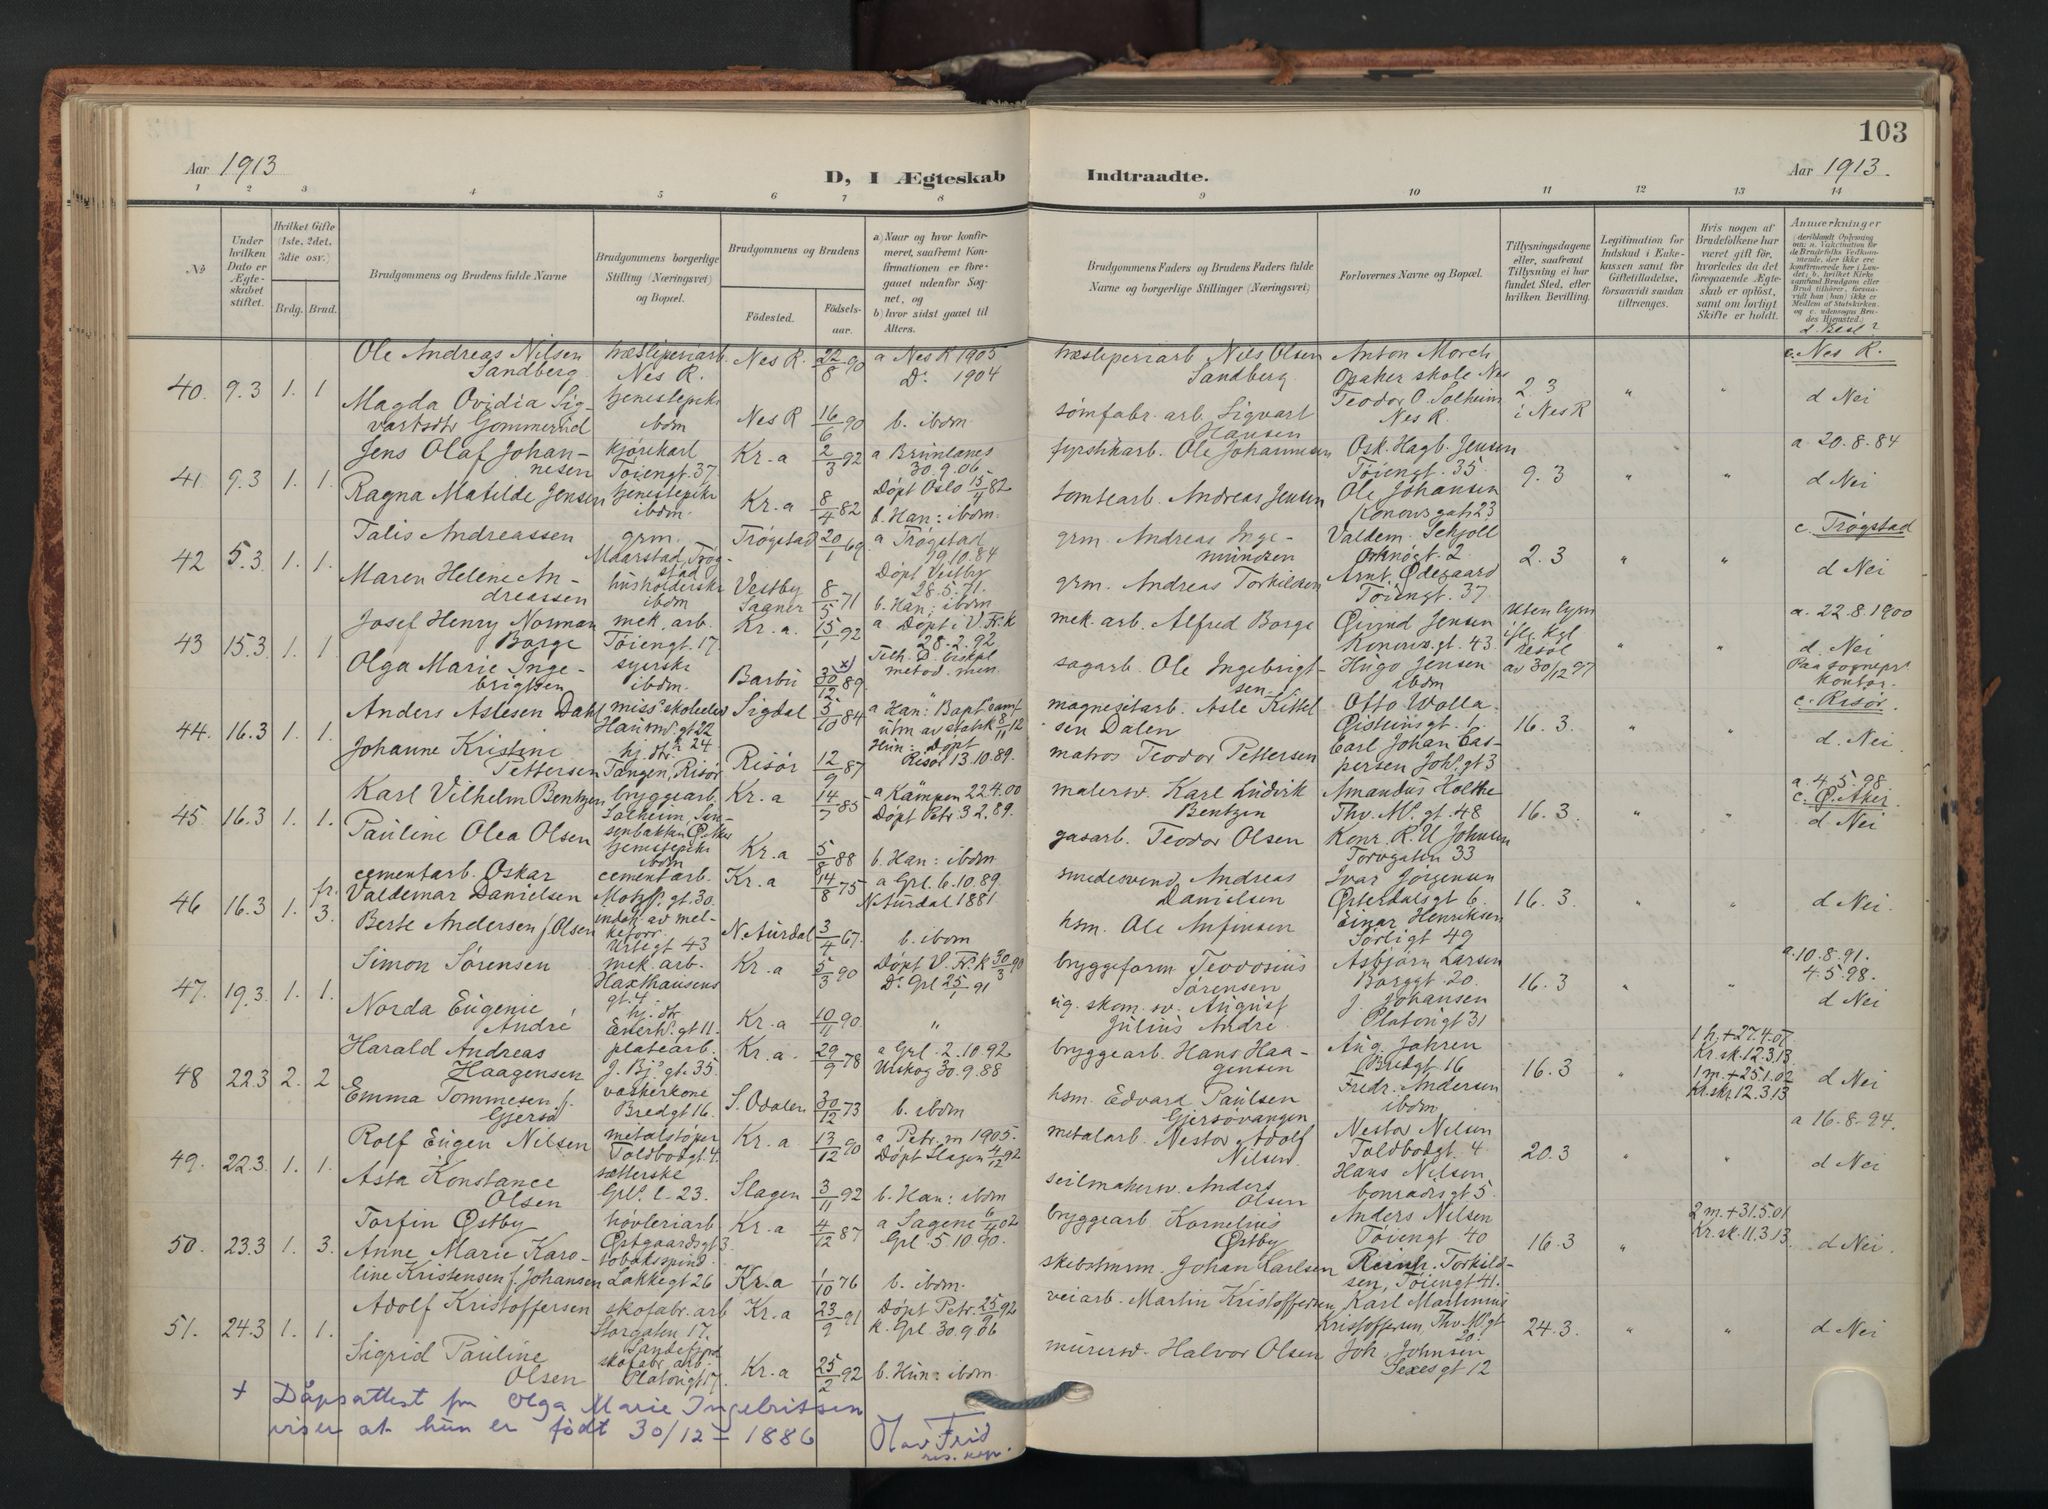 103
Aar 1913
D, I Ægteskab Indtraadte.
Aar 1913.
1 2 3 4 5 6 7 8 9 10 11 12 13 14
No
Under hvilken Dato er Ægteskabet stiftet.
Hvilket Gifte (1ste, 2det, 3die osv.)
Brdg. Brud.
Brudgommens og Brudens fulde Navne
Brudgommens borgerlige Stilling (Næringsvei) og Bopæl.
Brudgommens og Brudens
Fødested. Fødselsaar.
a) Naar og hvor konfirmeret, saafremt Konfirmationen er foregaaet udenfor Sognet, og
b) hvor sidst gaaet til Alters.
Brudgommens Faders og Brudens Faders fulde Navne og borgerlige Stillinger (Næringsvei)
Forlovernes Navne og Bopæl.
Tillysningsdagene eller, saafremt Tillysning ei har fundet Sted, efter hvilken Bevilling.
Legitimation for Indskud i Enkekassen samt for Giftetilladelse, forsaavidt saadan tiltrænges.
Hvis nogen af Brudefolkene har været gift før, hvorledes da det foregaaende Ægteskab er opløst, samt om lovligt Skifte er holdt.
Anmærkninger
d. Besl?
40. 9.3 1. 1
Ole Andreas Nilsen Sandberg
træsliperiarb Nes R.
Nes R. 22/8 90
a Nes R 1905
Do 1904
træsliperiarb Nils Olsen Sandberg
Anton Morch Opaker skole Nes
2.3 i Nes R
c. Nes R.
d Nei
Magda Ovidia Sigvartsdtr Gommerud
tjenestepike ibdm
Nes R 16/6 90
b. ibdm.
sømfabr. arb. Sigvart Hansen
Teodor O. Solheim Nes R.
41 9.3 1. 1.
Jens Olaf Johannesen
kjørekarl Tøiengt. 37.
Kr.a 2/3 92
a Brunlanes 30.9.06.
fyrstikarb. Ole Johannesen
Osk. Hagb. Jensen Tøiengt. 35.
9.3
a. 20.8.84
d Nei
Ragna Matilde Jensen
tjenestepike ibdm.
Kr.a 8/4 82
Døpt Oslo 15/4 82
b. Han: ibdm.
tomtearb. Andreas Jensen
Ole Johansen Konowsgate 23
42 5.3. 1. 1.
Talis Andreassen
grm. Maarstad, Trøgstad
Trøgstad 20/1 69
a Trøgstad 19.10.84
grm. Andreas Ingemundsen
Valdem. Schjoll Orknøgt. 2.
2.3
c. Trøgstad
d Nei
Maren Helene Andreassen
husholderske ibdm
Vestby Sagner 8/5 71
Døpt Vestby 28.5.71.
b. Han: ibdm
grm. Andreas Torkildsen
Arnt Ødegaard Tøiengt. 37
43 15.3. 1. 1
Josef Henry Norman Borge
mek. arb. Tøiengt. 17.
Kr.a. 15/1 92
a Døpt i V. Fr.k 28.2.92
mek. arb. Alfred Borge
Øivind Jensen Konowsgt. 43
uten lysn ifle. Kgl resol av 30/12 97
a. 22.8.1900
d. Nei
Paa sognepr. kontor.
Olga Marie Ingebrigtsen
syerske ibdm.
Barbu 30/12 89 x)
Teth. D. biskpl metod. men.
sagarb. Ole Ingebrigtsen.
Hugo Jensen ibdm
44. 16.3 1. 1.
Anders Aslesen Dahl
miss. skoleelev Hausm. gt 22
Sigdal 5/10 84
a Han: Bapt. samf utm av statsk 8/11 12
magnesitarb. Asle Kittelsen Dalen
Otto Wolla Øisteinsgt. 1.
16.3.
c. Risør.
d. Nei
Johanne Kristine Pettersen
hj. dtr. 24 Tangen, Risør
Risør 12/9 87
Hun: Døpt Risør 13.10.89.
matros Teodor Pettersen
Carl Johan Caspersen Joh. gt 3
45. 16.3 1. 1.
Karl Vilhelm Bentzen
bryggearb Solheim, Ø. Aker
Kr.a 14/7 85
a Kampen 22.4.00
Døpt Petr. 3.2.89.
malersv. Karl Ludvik Bentzen
Amandus Holthe Thv. M. gt. 48
16.3.
a. 4.5.98.
c. Ø. Aker
d Nei
Pauline Olea Olsen
tjenestepike ibdm
Kr.a 5/8 88
b. Han: ibdm
gasarb. Teodor Olsen
Konr. R. U. Johnsen Torvgaten 33
46 16.3. 1. fr. 3.
cementarb. Oskar Valdemar Danielsen
cementarb. Motzf. gt. 30.
Kr.a 14/8 75
a Grl. 6.10.89.
N. Aurdal 1881.
smedesvend Andreas Danielsen
Ivar Jørgensen Østerdalsgt 6.
16.3.
d Nei.
Berte Andersen f. Olsen
indeh. av melkeforr. Urtegt 43
N. Aurdal 3/4 67.
b. ibdm
hsm. Ole Anfinsen
Einar Henriksen Sorligt 49
47. 19.3. 1. 1.
Simon Sørensen
mek. arb. Haxthausens gt. 4.
Kr.a 5/3 90
Døpt V. Fr.k 30/3 90
Do Grl 25/1 91
bryggeform Teodosius Sørensen
Asbjørn Larsen Borggt. 20.
16.3
a. 10.8.91.
4.5.98.
d Nei
Norda Eugenie André
hj. dtr Enerh. gt 11.
Kr.a 10/11 90.
ug. skom. sv. August Julius André
J. Johansen Platousgt 31
48 22.3 2. 2
Harald Andreas Haagensen
platearb. J. Bj. gt. 35.
Kr.a. 29/9 78
a Grl. 2.10.92
Urskog 30.9.88
bryggearb. Hans Haagensen
Aug. Jahren Bredgt 16
16.3
1 h. + 27.4.07 Kr. sk. 12.3.13
1 m. + 25.1.02 Kr. skr. 12.3.13
d Nei
Emma Tommesen f. Gjersø
vaskerkone Bredgt 16.
S. Odalen 30/12 73
b. ibdm
hsm. Edvard Paulsen Gjersøvangen
Fredr. Andersen ibdm
49. 22.3. 1. 1.
Rolf Eugen Nilsen
metalstøper Toldbodgt 4.
Kr.a. 13/12 90
a Petr. m 1905.
Døpt Slagen 4/12 92
metalarb. Nestor Adolf Nilsen.
Nestor Nilsen Toldbodgt. 4
20.3
a 16.8.94.
d Nei
Asta Konstance Olsen
sætterske Grl. l. 23.
Slagen 3/11 92
b. Han: ibdm
seilmakersv. Anders Olsen
Hans Nilsen Conradisgt 5.
50. 23.3 1. 3.
Torfin Østby
høvleriarb Østgaardsgt 3.
Kr.a 4/12 87
a Sagene 6/4 02
Grl. 5.10.90.
bryggearb. Kornelius Østby
Anders Nilsen Tøiengt. 40
16.3
2 m. + 31.5.01 Kr. sk. 11.3.13.
d Nei.
Anne Marie Karoline Kristensen f. Johansen
tobaksspind. Lakkegt 26
Kr.a 1/10 76
b. ibdm.
skibstmrm. Johan Carlsen
Reinh. Torkildsen, Tøiengt 41.
51. 24.3 1. 1.
Adolf Kristoffersen
skofabr. arb Storgaten 17. Sandefjord
Kr.a 23/9 91
Døpt Petr. 25/9 92
k. Grl. 30.9.06
veiarb. Martin Kristoffersen
Karl Martinius Kristoffersen, Thv. M. gt 20.
24.3.
d Nei
Sigrid Pauline Olsen
skofabr. arb. Platousgt 17.
Kr.a 25/2 92
b. Hun: ibdm.
murersv. Halvor Olsen
Joh. Johnsen Sexesgt 12
+ Dåpsattest for Olga Marie Ingebritsen
viser at hun er født 30/12 – 1886
Olav Frid
res. kap.